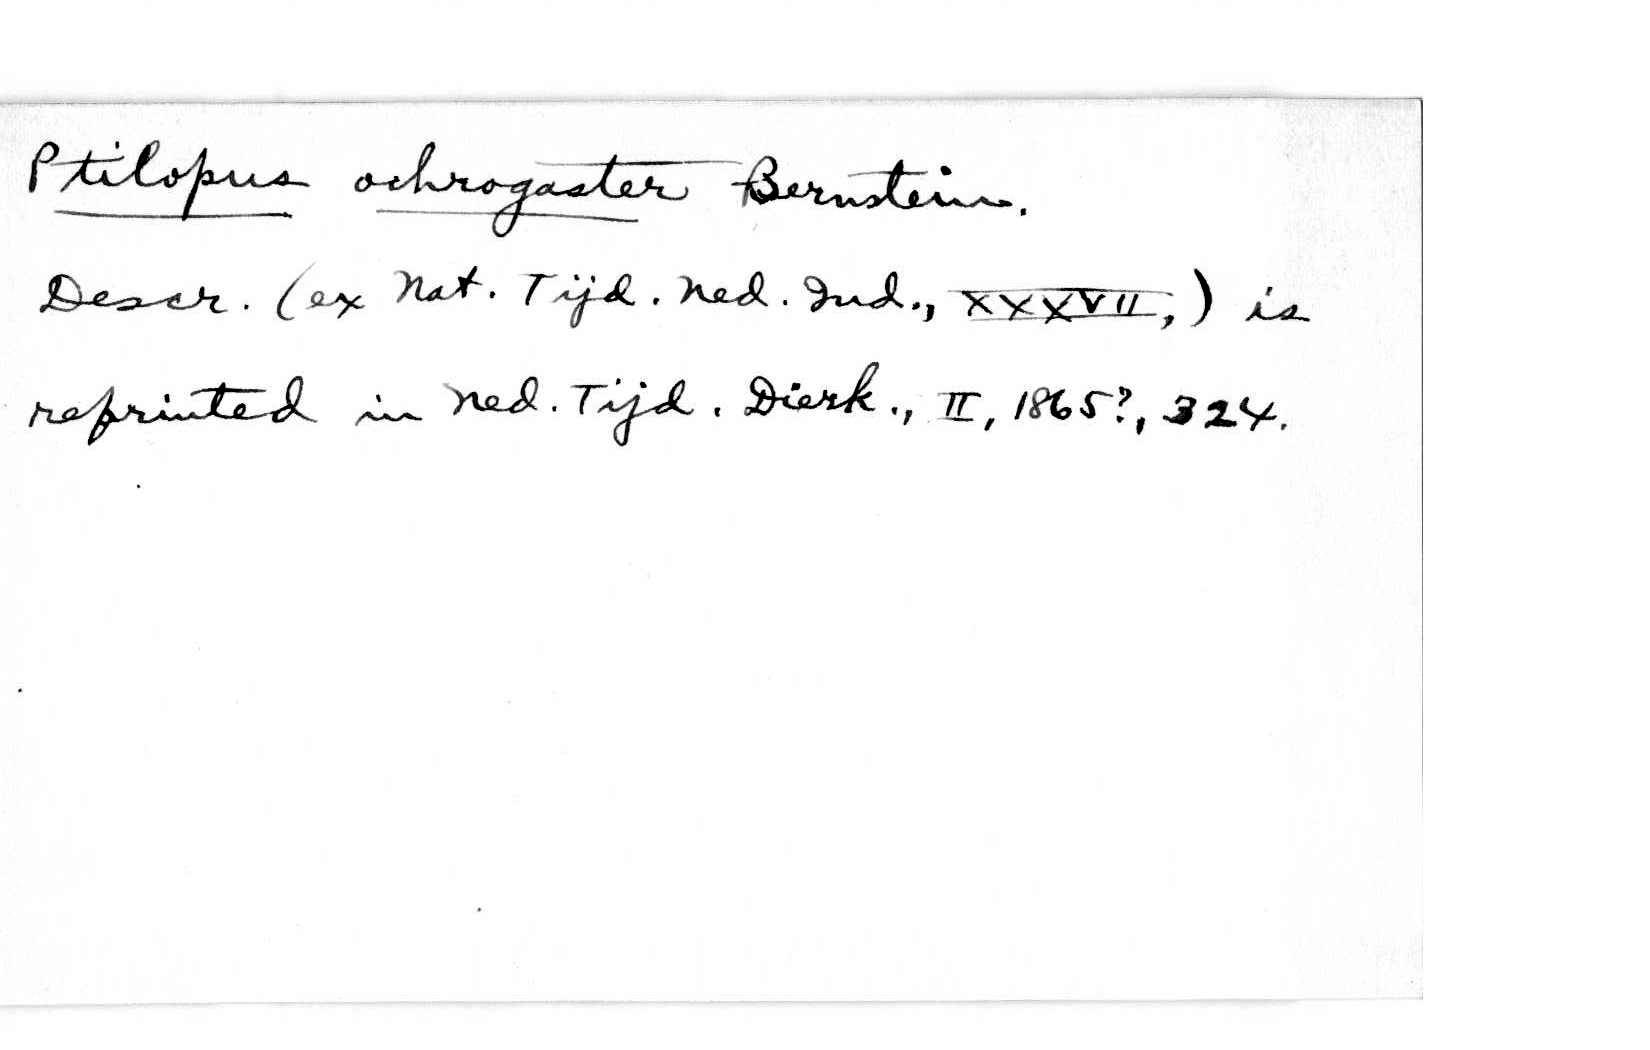 Ptilopus ochrogaster Bernstein.
Descr. (ex Nat. Tijd. Ned. Ind., XXXVII,) is
reprinted in Ned. Tijd. Dierk., II, 1865?, 324.